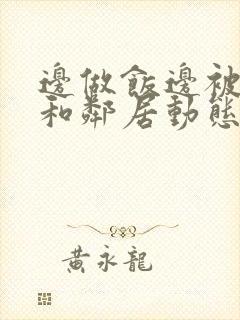 邊做飯邊被
和鄰居動態
黃永龍